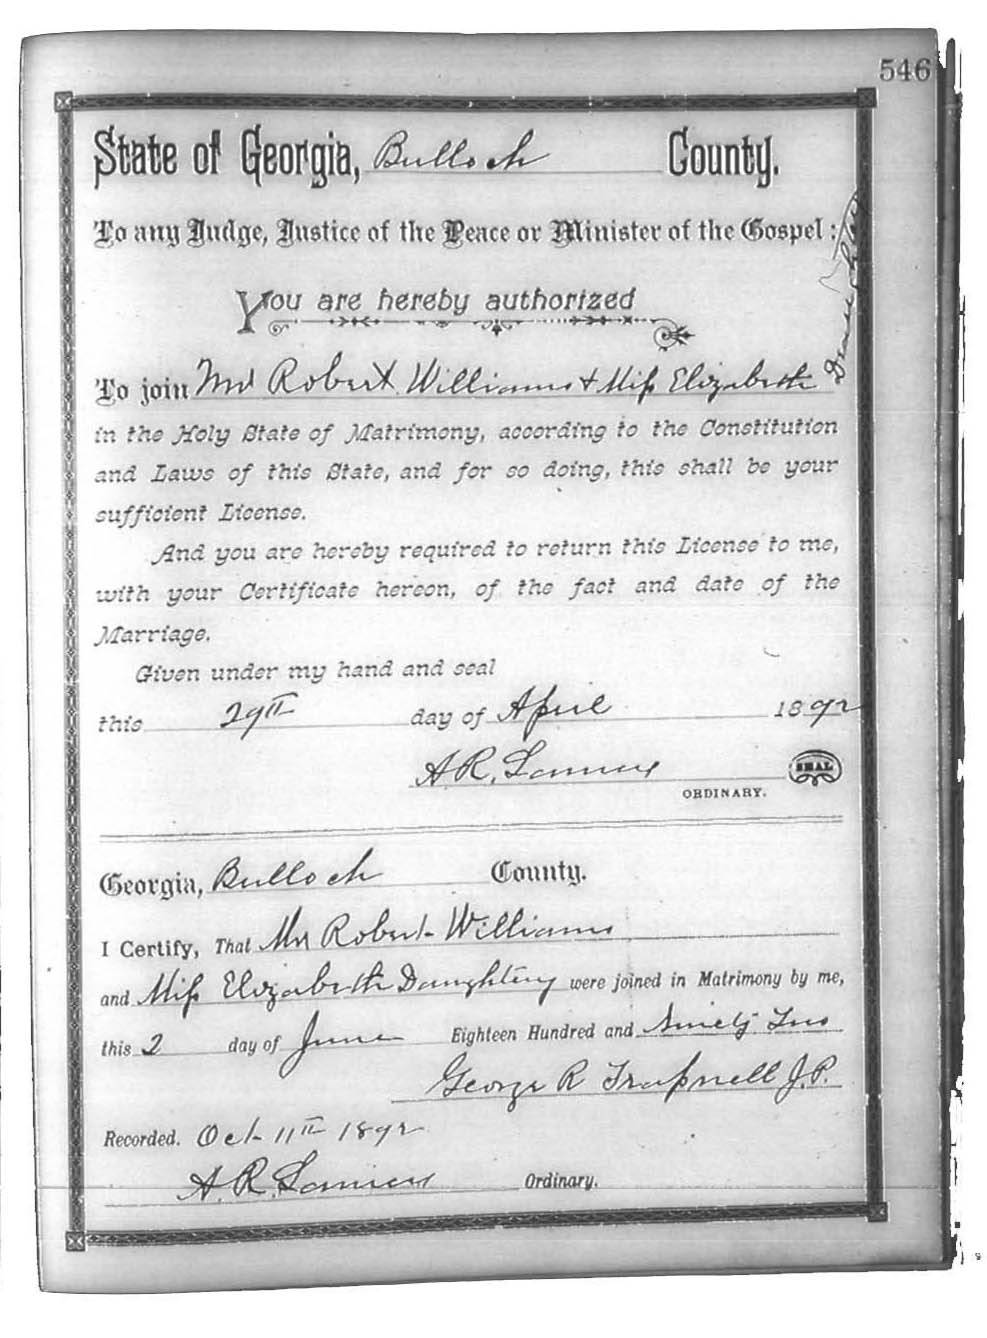 546
State of Georgia, Bulloch County.
To any Judge, Justice of the Peace or Minister of the Gospel:
You are hereby authorized
To join Mr Robert Williams & Miss Elizabeth
in the Holy State of Matrimony, according to the Constitution
and Laws of this State, and for so doing, this shall be your
sufficient License.
And you are hereby required to return this License to me,
with your Certificate hereon, of the fact and date of the
Marriage.
Given under my hand and seal
this 29th day of April 1892
A. R. Lanier SEAL
ORDINARY.
Georgia, Bulloch County.
I Certify, That Mr Robert Williams
and Miss Elizabeth Daughtery were joined in Matrimony by me,
this 2 day of June Eighteen Hundred and Ninety Two
George R Trapnell J.P.
Recorded. Oct 11th 1892
A. R. Lanier Ordinary.